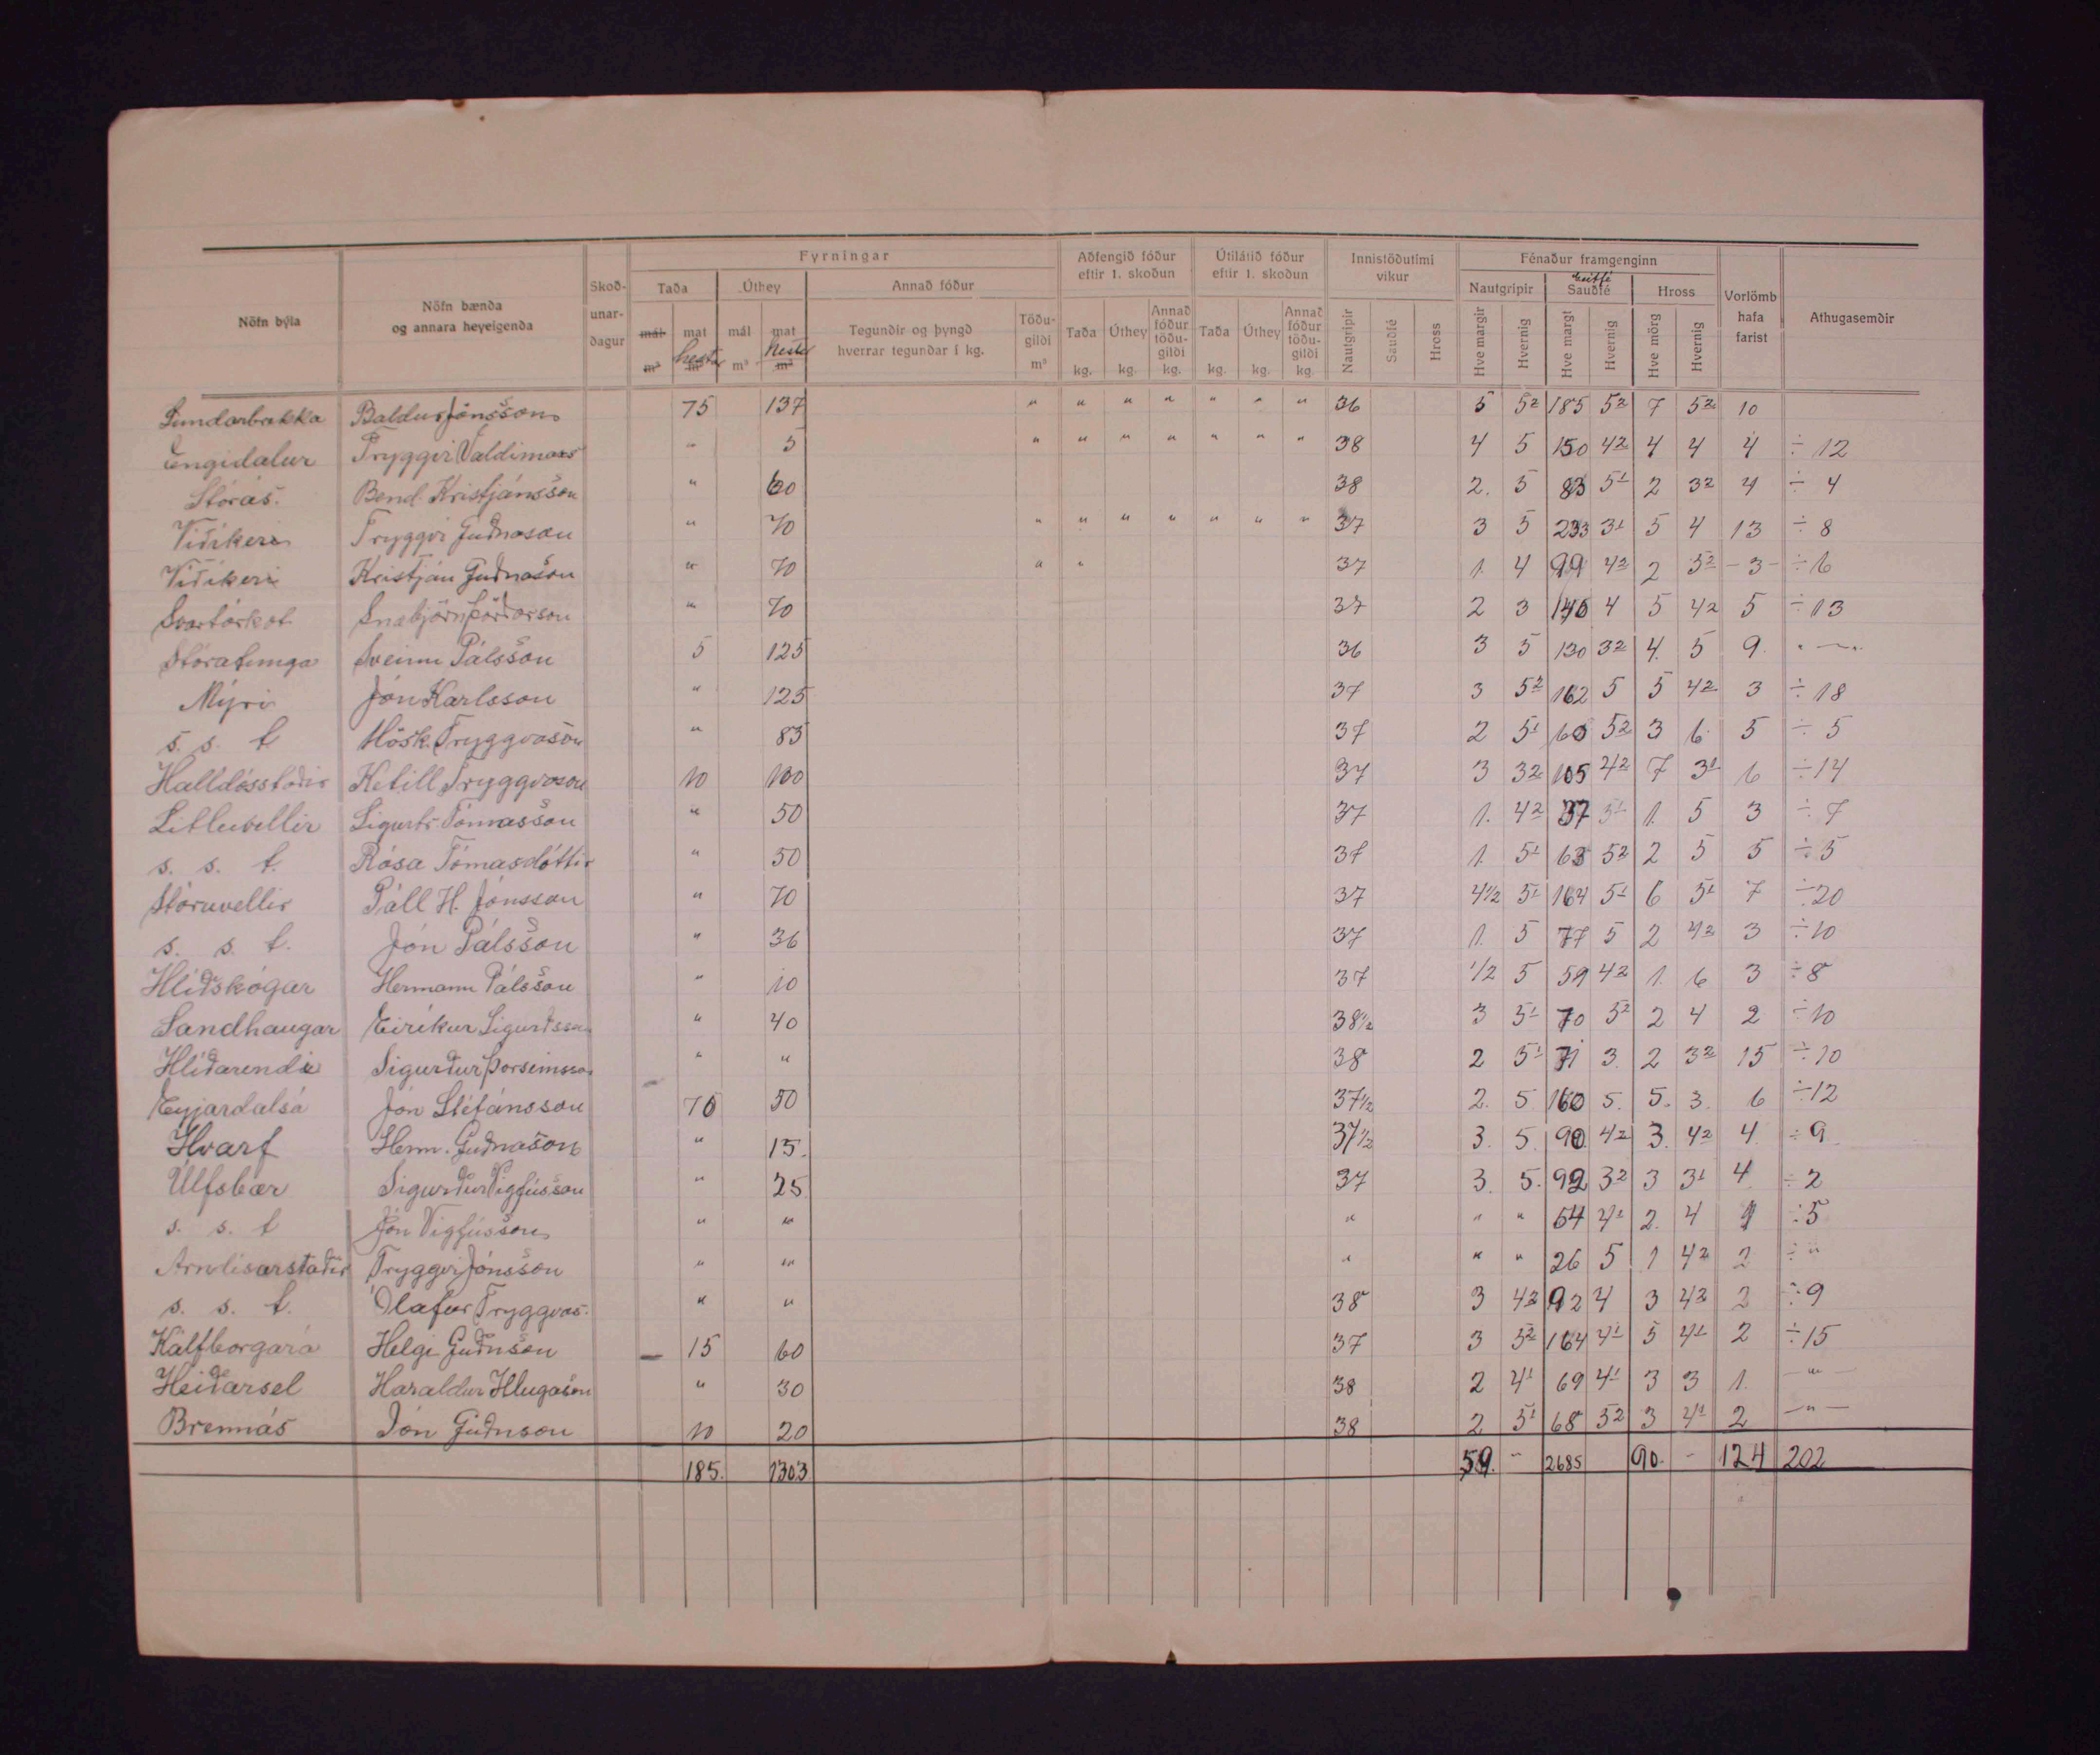 Fyrningar Aðfengið fóður eftir 1. skoðun Útilátið fóður eftir 1. skoðun Innistöðutími vikur Fénaður framgenginn
Nöfn býla Nöfn bænda og annara heyeigenda Skoð-unar-dagur Taða Úthey Annað fóður Nautgripir Sauðfé Hross Vorlömb hafa farist Athugasemdir
mál m³ mat hestar m³ mál m³ mat hestar m³ Tegundir og þyngd hverrar tegundar í kg. Töðu-gildi m³ Taða kg. Úthey kg. Annað fóður töðu-gildi kg. Taða kg. Úthey kg. Annað fóður töðu-gildi kg. Nautgripir Sauðfé Hross Hve margir Hvernig Hve margt Hvernig Hve mörg Hvernig
Lundarbrekka Baldur Jónsson 75 137 " " " " " " " 36 5 52 185 52 7 52 10
Engidalur Tryggvi Valdimars " 5 " " " " " " " 38 4 5 150 42 4 4 4 ÷ 12
Stórás. Bend. Kristjánsson " 60 38 2. 5 83 51 2 32 4 ÷ 4
Víðiker Tryggvi Guðnason " 70 " " " " " " " 37 3 5 233 31 5 4 13 ÷ 8
Víðiker Kristján Guðnason " 70 " " 37 1. 4 99 42 2 52 - 3 - ÷ 6
Svartárkot Snæbjörn Þórðarson " 70 37 2 3 146 4 5 42 5 ÷ 13
Stóratunga Sveinn Pálsson 5 125 36 3 5 130 32 4. 5 9. " — "
Mýri Jón Karlsson " 125 37 3 52 162 5 5 42 3 ÷ 18
s. s. t Hösk. Tryggvason " 83 37 2 51 60 52 3 6 5 ÷ 5
Halldósstaðir Ketill Tryggvason 10 100 37 3 32 105 42 7 31 6 ÷ 14
Litluvellir Sigurtr. Tómasson " 50 37 1. 42 37 51 1. 5 3 ÷ 7
s. s. t. Rósa Tómasdóttir " 50 37 1. 51 63 52 2 5 5 ÷ 5
Stóruvellir Páll H. Jónsson " 70 37 4½ 51 164 51 6 51 7 ÷ 20
s. s. t. Jón Pálsson " 36 37 1. 5 77 5 2 42 3 ÷ 10
Hlíðskógar Hermann Pálsson " 10 37 1/2 5 59 42 1. 6 3 ÷ 8
Sandhaugar Eiríkur Sigurðsson " 40 38½ 3 51 70 52 2 4 2 ÷ 10
Hlíðarendi Sigurður Þorseinsson " " 38 2 51 71 3. 2 32 15 ÷ 10
Eyjardalsá Jón Stefánsson 70 50 37½ 2. 5 160 5. 5. 3. 6 ÷ 12
Hvarf Herm. Guðnason " 15. 37½ 3. 5. 90. 42 3. 42 4 ÷ 9
Úlfsbær Sigurður Vigfússon " 25 37 3. 5. 92 32 3 31 4 ÷ 2
s. s. t Jón Vigfússon " " " " " 54 41 2. 4 1 ÷ 5
Arndísarstaðir Tryggvi Jónsson " " " " " 26 5 1 42 2 ÷ "
s. s. t. Ólafur Tryggvas. " " 38 3 42 92 4 3 42 2 ÷ 9
Kálfborgará Helgi Guðnson 15 60 37 3 52 164 41 5 41 2 ÷ 15
Heiðarsel Haraldur Illugason " 30 38 2 41 69 41 3 3 1. — " —
Brennás Jón Guðnson 10 20 38 2 51 68 52 3 41 2 — " —
185. 1303 59. - 2685 90. - 124 202